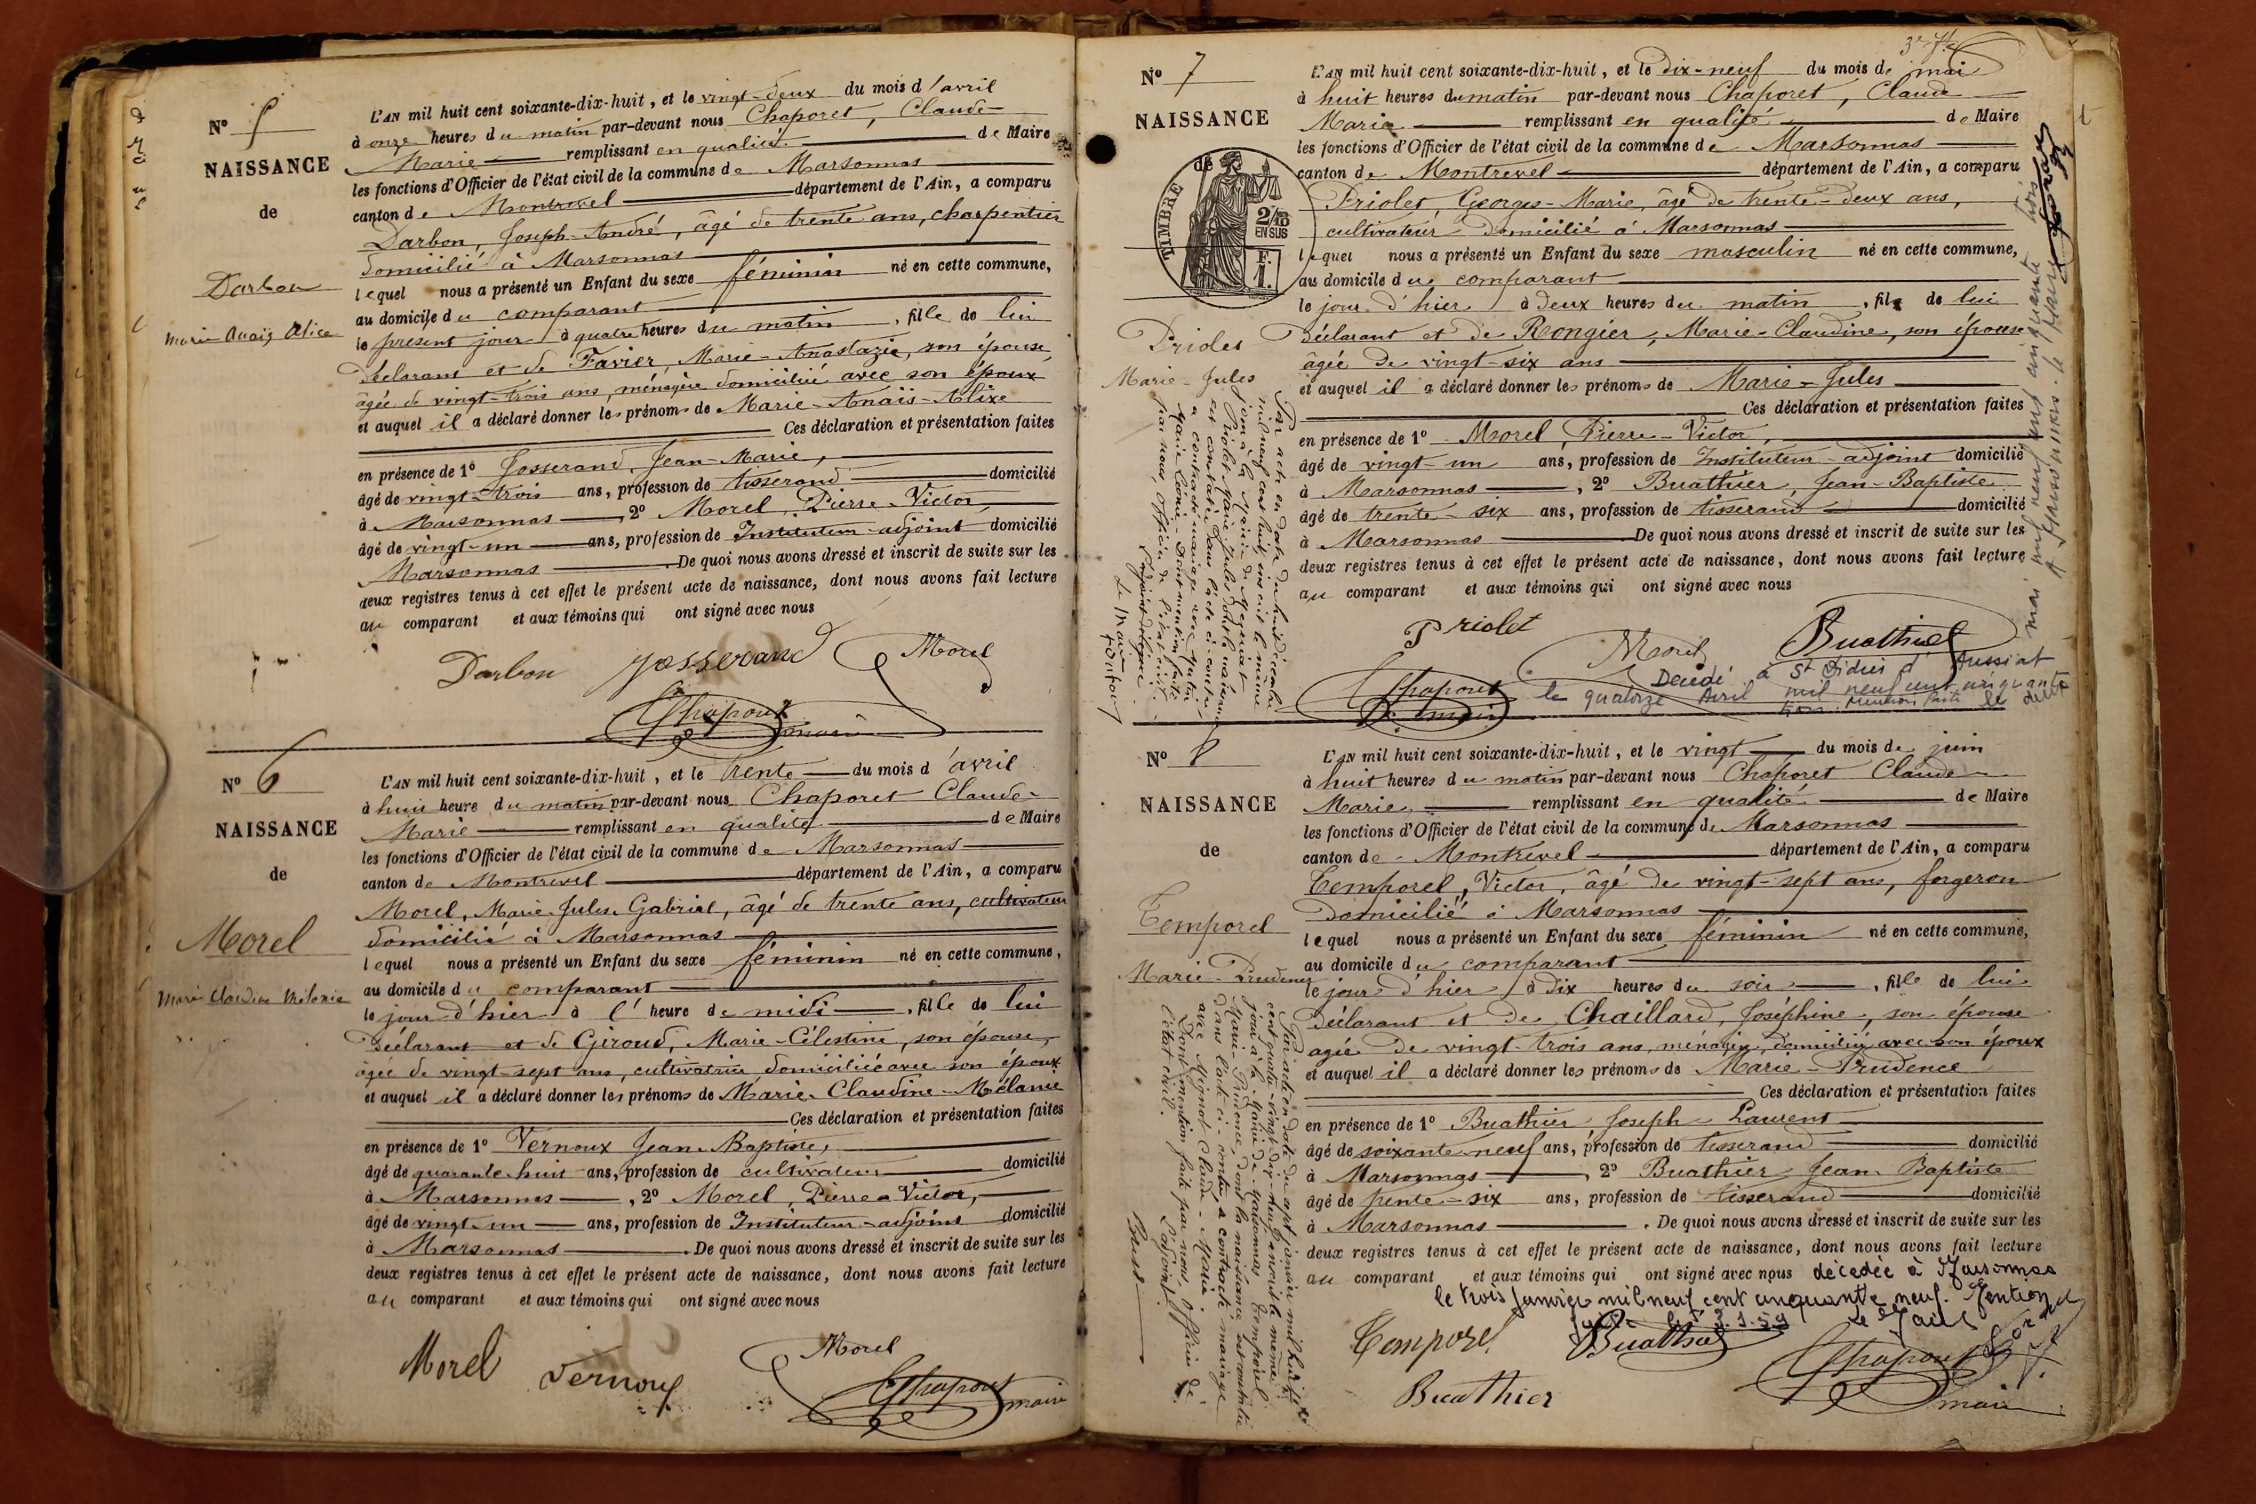 Nº 5
NAISSANCE
de
Darbon
Marie Anaïs Alice
L'AN mil huit cent soixante-dix-huit, et le vingt-deux du mois d'avril
à onze heures du matin par-devant nous Chaporet, Claude-
Marie remplissant en qualité de Maire
les fonctions d'Officier de l'état civil de la commune de Marsonnas
canton de Montrevel département de l'Ain, a comparu
Darbon, Joseph-André, âgé de trente ans, charpentier
domicilié à Marsonnas
lequel nous a présenté un Enfant du sexe féminin né en cette commune,
au domicile du comparant
le présent jour à quatre heures du matin, fille de lui
déclarant et de Favier, Marie-Anastazie, son épouse
âgée de vingt-trois ans, ménagère domiciliée avec son époux
et auquel il a déclaré donner les prénoms de Marie-Anaïs-Alixe
Ces déclaration et présentation faites
en présence de 1º Josserand, Jean-Marie,
âgé de vingt-trois ans, profession de tisserand domicilié
à Marsonnas, 2º Morel, Pierre-Victor,
âgé de vingt-un ans, profession de Instituteur-adjoint domicilié
Marsonnas. De quoi nous avons dressé et inscrit de suite sur les
deux registres tenus à cet effet le présent acte de naissance, dont nous avons fait lecture
au comparant et aux témoins qui ont signé avec nous
Darbon Josserand Morel
Chaporet maire
Nº 6
NAISSANCE
de
Morel
Marie Claudine Mélanie
L'AN mil huit cent soixante-dix-huit, et le trente du mois d'avril
à huit heure du matin par-devant nous Chaporet Claude-
Marie remplissant en qualité de Maire
les fonctions d'Officier de l'état civil de la commune de Marsonnas
canton de Montrevel département de l'Ain, a comparu
Morel, Marie-Jules-Gabriel, âgé de trente ans, cultivateur
domicilié à Marsonnas
lequel nous a présenté un Enfant du sexe féminin né en cette commune,
au domicile du comparant
le jour d'hier à l'heure de midi, fille de lui
déclarant et de Giroud, Marie-Célestine, son épouse,
âgée de vingt-sept ans, cultivatrice domiciliée avec son époux
et auquel il a déclaré donner les prénoms de Marie-Claudine-Mélanie
Ces déclaration et présentation faites
en présence de 1º Vernoux Jean-Baptiste,
âgé de quarante-huit ans, profession de cultivateur domicilié
à Marsonnas, 2º Morel, Pierre-Victor,
âgé de vingt-un ans, profession de Instituteur-adjoint domicilié
à Marsonnas. De quoi nous avons dressé et inscrit de suite sur les
deux registres tenus à cet effet le présent acte de naissance, dont nous avons fait lecture
au comparant et aux témoins qui ont signé avec nous
Morel Vernoux Morel
Chaporet maire
3e fe
Nº 7
NAISSANCE
de
TIMBRE
2/10 EN SUS
F. 1.
Priolet
Marie-Jules
L'AN mil huit cent soixante-dix-huit, et le dix-neuf du mois de mai
à huit heures du matin par-devant nous Chaporet, Claude
Marie remplissant en qualité de Maire
les fonctions d'Officier de l'état civil de la commune de Marsonnas
canton de Montrevel département de l'Ain, a comparu
Priolet, Georges-Marie, âgé de trente-deux ans,
cultivateur domicilié à Marsonnas
lequel nous a présenté un Enfant du sexe masculin né en cette commune,
au domicile du comparant
le jour d'hier à deux heures du matin, fils de lui
déclarant et de Rongier, Marie-Claudine, son épouse
âgée de vingt-six ans
et auquel il a déclaré donner les prénoms de Marie-Jules
Ces déclaration et présentation faites
en présence de 1º Morel, Pierre-Victor,
âgé de vingt-un ans, profession de Instituteur-adjoint domicilié
à Marsonnas, 2º Buathier, Jean-Baptiste
âgé de trente-six ans, profession de tisserand domicilié
à Marsonnas De quoi nous avons dressé et inscrit de suite sur les
deux registres tenus à cet effet le présent acte de naissance, dont nous avons fait lecture
au comparant et aux témoins qui ont signé avec nous
Priolet Morel Buathier
Chaporet maire
Décédé à St Didier d'Aussiat
le quatorze Avril mil neuf cent cinquante
trois. Mention faite le deux
mai mil neuf cent cinquante trois
A Marsonnas. le Maire
Nº 8
NAISSANCE
de
Temporel
Marie-Prudence
L'AN mil huit cent soixante-dix-huit, et le vingt du mois de juin
à huit heures du matin par-devant nous Chaporet Claude
Marie remplissant en qualité de Maire
les fonctions d'Officier de l'état civil de la commune de Marsonnas
canton de Montrevel département de l'Ain, a comparu
Temporel, Victor, âgé de vingt-sept ans, forgeron
domicilié à Marsonnas
lequel nous a présenté un Enfant du sexe féminin né en cette commune,
au domicile du comparant
le jour d'hier à dix heures du soir, fille de lui
déclarant et de Chaillard, Joséphine, son épouse
agée de vingt-trois ans, ménagère, domiciliée avec son époux
et auquel il a déclaré donner les prénoms de Marie-Prudence
Ces déclaration et présentation faites
en présence de 1º Buathier, Joseph-Laurent
âgé de soixante-neuf ans, profession de tisserand domicilié
à Marsonnas, 2º Buathier Jean-Baptiste
âgé de trente-six ans, profession de tisserand domicilié
à Marsonnas. De quoi nous avons dressé et inscrit de suite sur les
deux registres tenus à cet effet le présent acte de naissance, dont nous avons fait lecture
au comparant et aux témoins qui ont signé avec nous décédée à Marsonnas
le trois Janvier mil neuf cent cinquante neuf. Mention
Temporel Buathier
Buathier
Chaporet maire